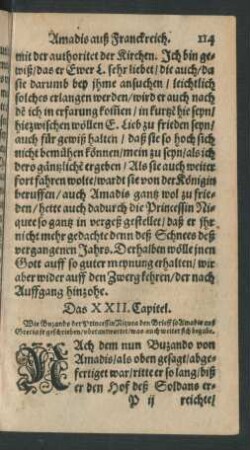 Amadis auß Franckreich. 114
mit der authoritet der Kirchen. Ich bin ge-
wiß/das er Ewer L. sehr liebet/die auch/da
sie darumb bey jhme ansuchen / leichtlich
solches erlangen werden/wird er auch nach
dẽ ich in erfarung kom̃en/in kurtzẽ hie seyn/
hiezwischen wöllen E. Lieb zu frieden seyn/
auch für gewiß halten / daß sie so hoch sich
nicht bemühen können/mein zu seyn/als ich
ders gäntzlichẽ ergeben / Als sie auch weiter
fort fahren wolte/wardt sie von der Königin
beruffen / auch Amadis gantz wol zu frie-
den / hette auch dadurch die Princessin Ni-
quee so gantz in vergeß gestellet/ daß er jhr
nicht mehr gedachte denn deß Schnees deß
vergangenen Jahrs. Derhalben wölle jnen
Gott auff so guter meynung erhalten/ wir
aber wider auff den Zwerg kehren/der nach
Auffgang hinzohe.
Das XXII. Capitel.
Wie Buzando der Princessin Niquea den Brieff so Amadis auß
Grecia jr geschrieben/ vberantwortet/was auch weiter sich begabe.
NAch dem nun Buzando von
Amadis/als oben gesagt/abge-
fertiget war/ritte er so lang/biß
er den Hof deß Soldans er-
P ij reichte/